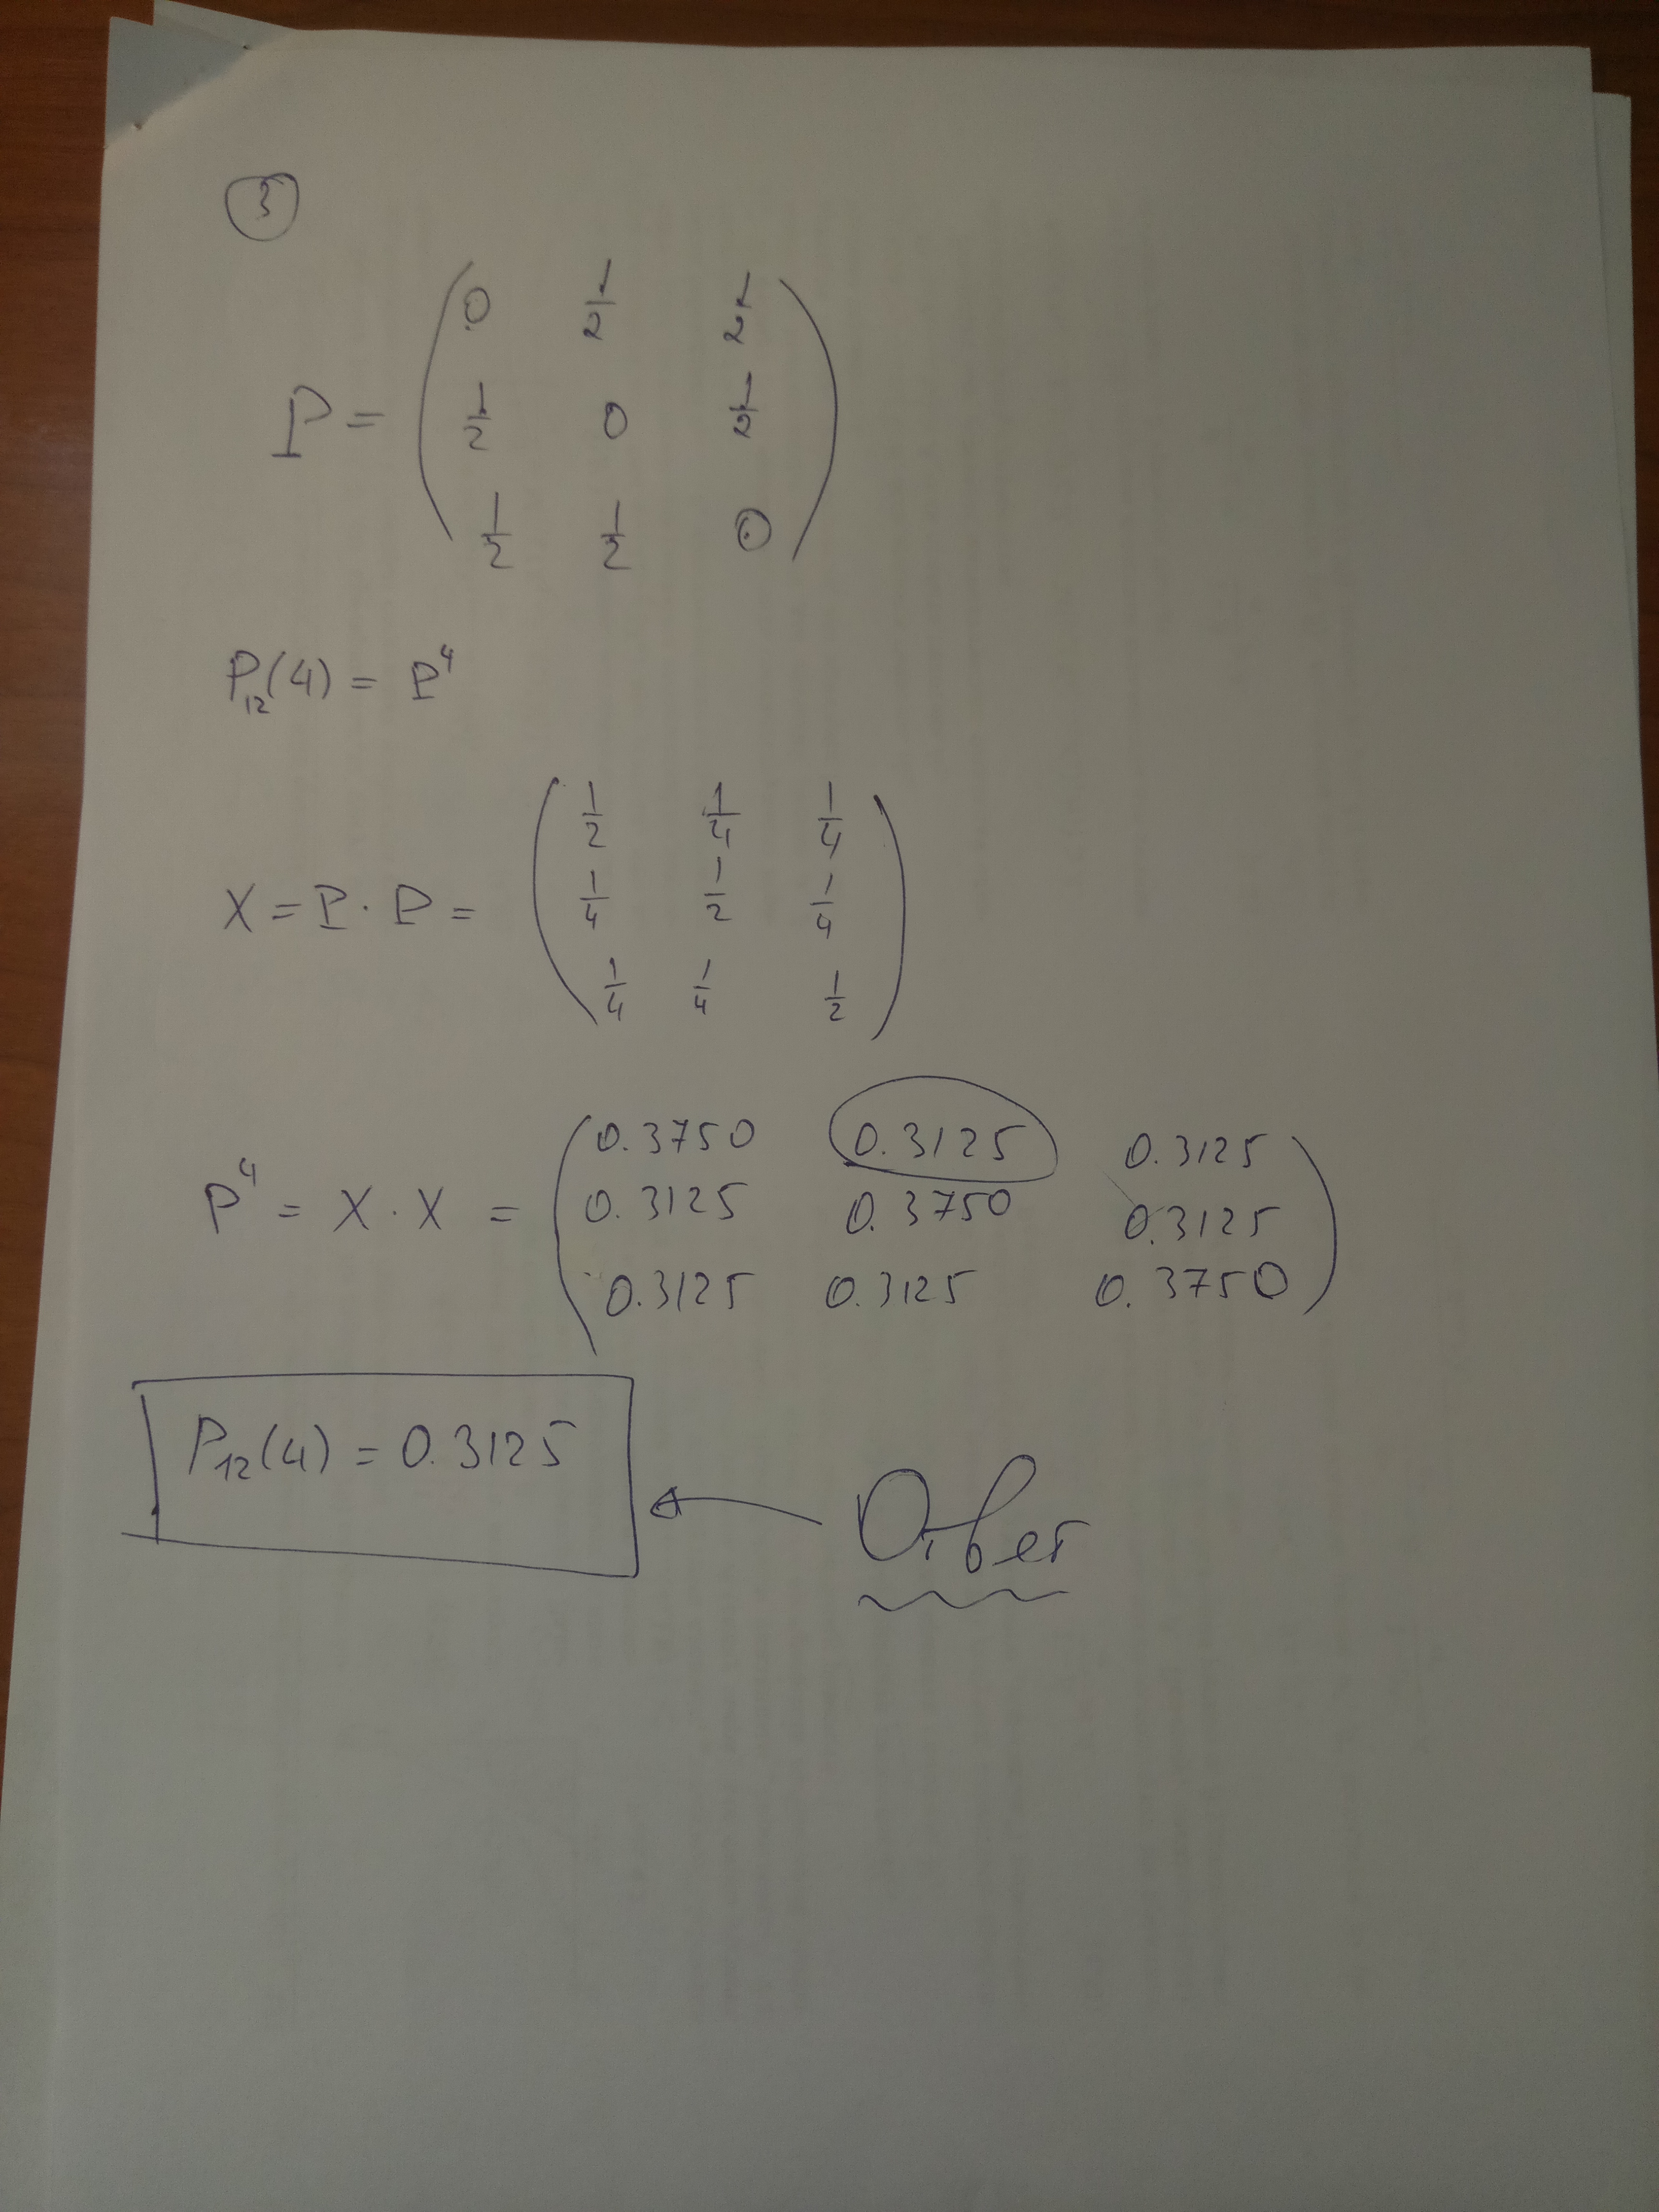 3
P = ( 0 1/2 1/2
1/2 0 1/2
1/2 1/2 0 )
P₁₂(4) = P⁴
X = P · P = ( 1/2 1/4 1/4
1/4 1/2 1/4
1/4 1/4 1/2 )
P⁴ = X · X = ( 0.3750 0.3125 0.3125
0.3125 0.3750 0.3125
0.3125 0.3125 0.3750 )
P₁₂(4) = 0.3125
Ответ